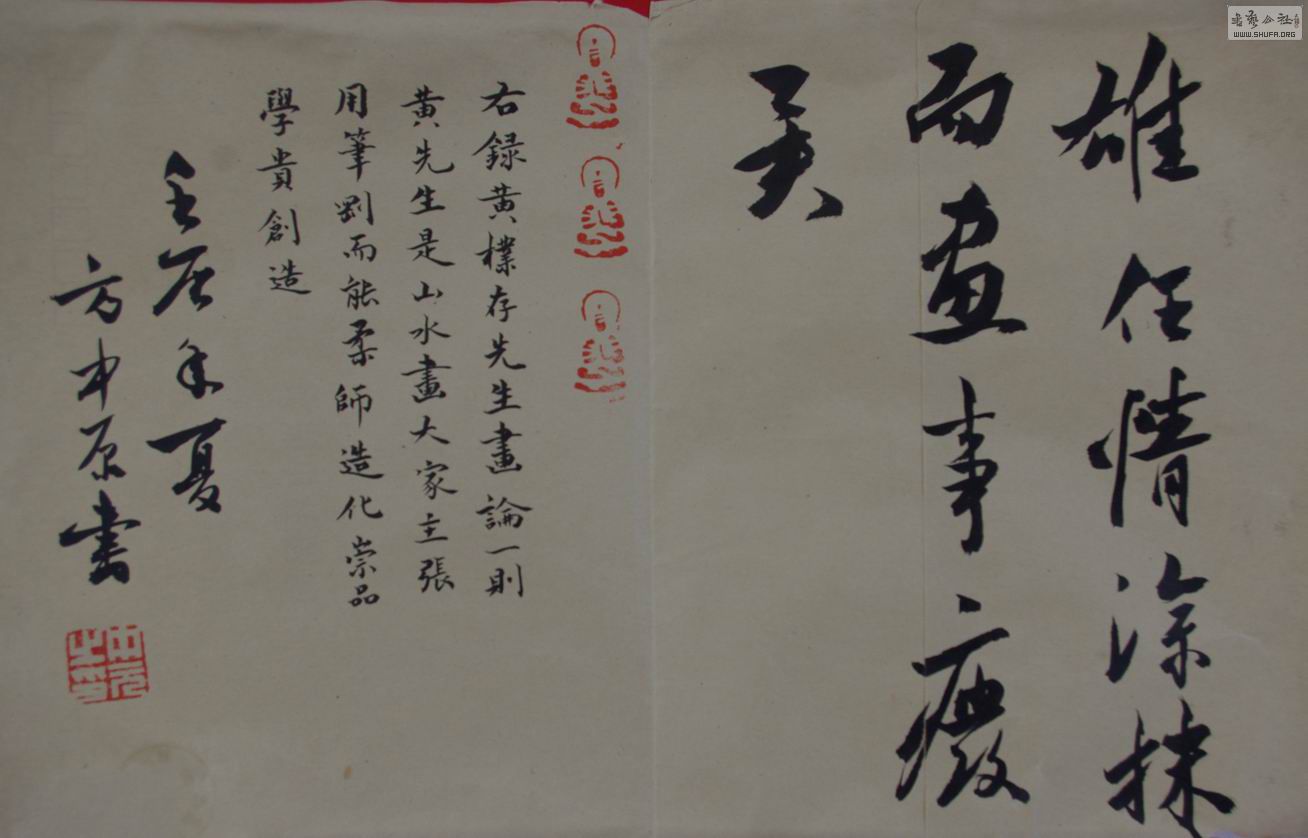 雄任情涂抹
而画事廢
矣
右録黄樸存先生畫論一則
黄先生是山水畫大家主張
用筆剛而能柔師造化崇品
學貴創造
壬辰年夏
方中原書
書藝公社
WWW.SHUFA.ORG